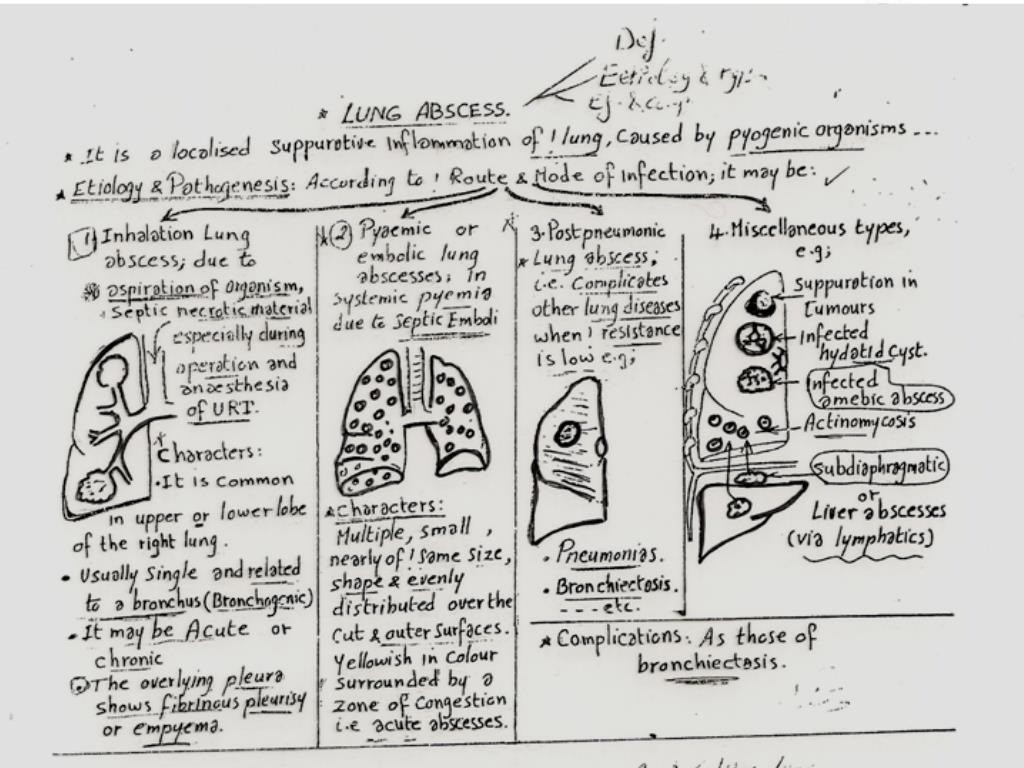 Def.
Etiology & Types
* LUNG ABSCESS.
* It is a localised Suppurative Inflammation of ! lung, Caused by pyogenic organisms ...
* Etiology & Pathogenesis: According to ! Route & Mode of Infection; it may be: ✓
1) Inhalation Lung
abscess; due to
aspiration of organism,
Septic necrotic material
especially during
operation and
anaesthesia
of URT.
* Characters:
• It is Common
in upper or lower lobe
of the right lung.
• Usually Single and related
to a bronchus (Bronchogenic)
• It may be Acute or
chronic
The overlying pleura
shows fibrinous pleurisy
or empyema.
* (2) Pyaemic or
embolic lung
abscesses; in
systemic pyemia
due to Septic Emboli
* Characters:
Multiple, small,
nearly of ! same size,
shape & evenly
distributed over the
Cut & outer Surfaces.
Yellowish in Colour
Surrounded by a
zone of Congestion
i.e acute abscesses.
3. Postpneumonic
* Lung abscess;
i.e. Complicates
other lung diseases
when ! resistance
is low e.g;
• Pneumonias.
• Bronchiectasis.
---- etc.
4. Miscellaneous types,
e.g;
Suppuration in
Tumours
Infected
hydatid Cyst.
Infected
amebic abscess
Actinomycosis
Subdiaphragmatic
or
Liver abscesses
(via lymphatics)
* Complications: As those of
bronchiectasis.